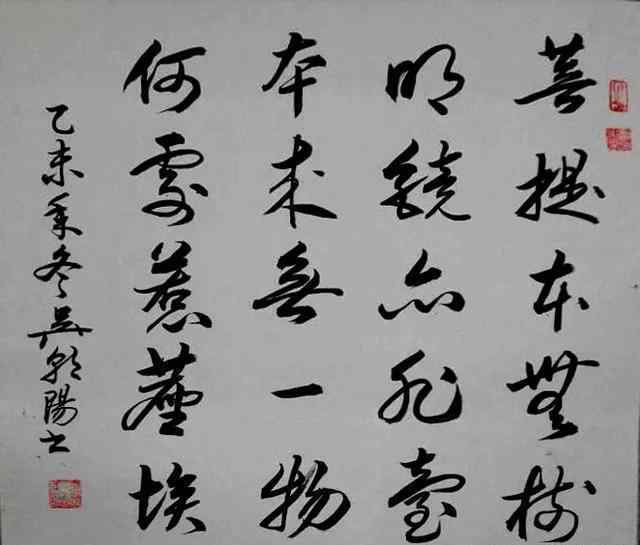 菩提本無樹
明鏡亦非臺
本來無一物
何處惹塵埃
乙未年冬吳朝陽书